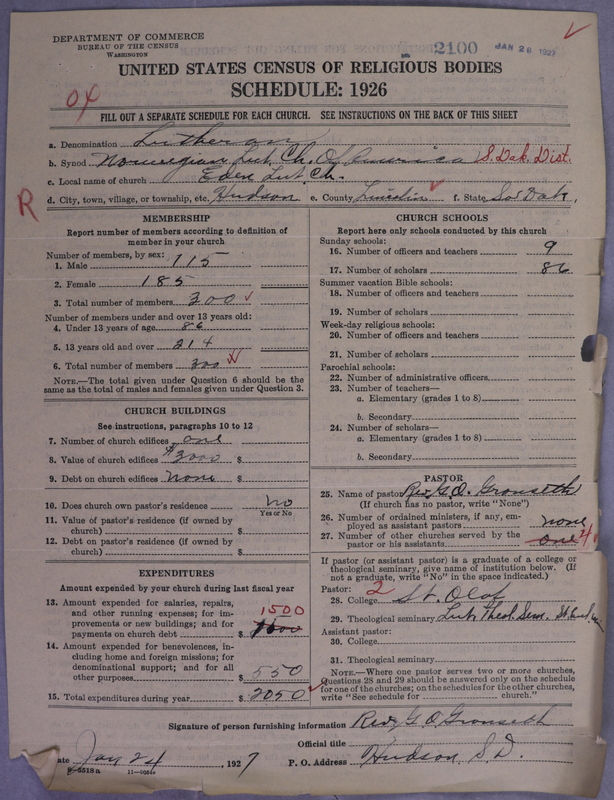 DEPARTMENT OF COMMERCE
BUREAU OF THE CENSUS
WASHINGTON
2100
JAN 26 1927
UNITED STATES CENSUS OF RELIGIOUS BODIES
SCHEDULE: 1926
FILL OUT A SEPARATE SCHEDULE FOR EACH CHURCH. SEE INSTRUCTIONS ON THE BACK OF THIS SHEET
a. Denomination Lutheran
b. Synod Norwegian Lut. Ch. Of America S. Dak. Dist.
c. Local name of church Eden Lut. Ch.
d. City, town, village, or township, etc. Hudson e. County Lincoln f. State So. Dak.
R
MEMBERSHIP
Report number of members according to definition of
member in your church
Number of members, by sex:
1. Male 115
2. Female 185
3. Total number of members 300
Number of members under and over 13 years old:
4. Under 13 years of age 86
5. 13 years old and over 214
6. Total number of members 300
NOTE.—The total given under Question 6 should be the
same as the total of males and females given under Question 3.
CHURCH BUILDINGS
See instructions, paragraphs 10 to 12
7. Number of church edifices one
8. Value of church edifices $3000 $
9. Debt on church edifices none $
10. Does church own pastor's residence no
Yes or No
11. Value of pastor's residence (if owned by
church) $
12. Debt on pastor's residence (if owned by
church) $
EXPENDITURES
Amount expended by your church during last fiscal year
13. Amount expended for salaries, repairs,
and other running expenses; for im-
provements or new buildings; and for
payments on church debt $ 1500
14. Amount expended for benevolences, in-
cluding home and foreign missions; for
denominational support; and for all
other purposes $ 550
15. Total expenditures during year $ 2050
CHURCH SCHOOLS
Report here only schools conducted by this church
Sunday schools:
16. Number of officers and teachers 9
17. Number of scholars 86
Summer vacation Bible schools:
18. Number of officers and teachers
19. Number of scholars
Week-day religious schools:
20. Number of officers and teachers
21. Number of scholars
Parochial schools:
22. Number of administrative officers
23. Number of teachers—
a. Elementary (grades 1 to 8)
b. Secondary
24. Number of scholars—
a. Elementary (grades 1 to 8)
b. Secondary
PASTOR
25. Name of pastor Rev. G. O. Gronseth
(If church has no pastor, write "None")
26. Number of ordained ministers, if any, em-
ployed as assistant pastors none
27. Number of other churches served by the
pastor or his assistants one
If pastor (or assistant pastor) is a graduate of a college or
theological seminary, give name of institution below. (If
not a graduate, write "No" in the space indicated.)
Pastor: 2
28. College St. Olaf
29. Theological seminary Luth. Theol. Sem. St. Paul
Assistant pastor:
30. College
31. Theological seminary
NOTE.—Where one pastor serves two or more churches,
questions 28 and 29 should be answered only on the schedule
for one of the churches; on the schedules for the other churches,
write "See schedule for church."
Signature of person furnishing information Rev. G O Gronseth
Official title
Date Jan 24 1927 P. O. Address Hudson S.D.